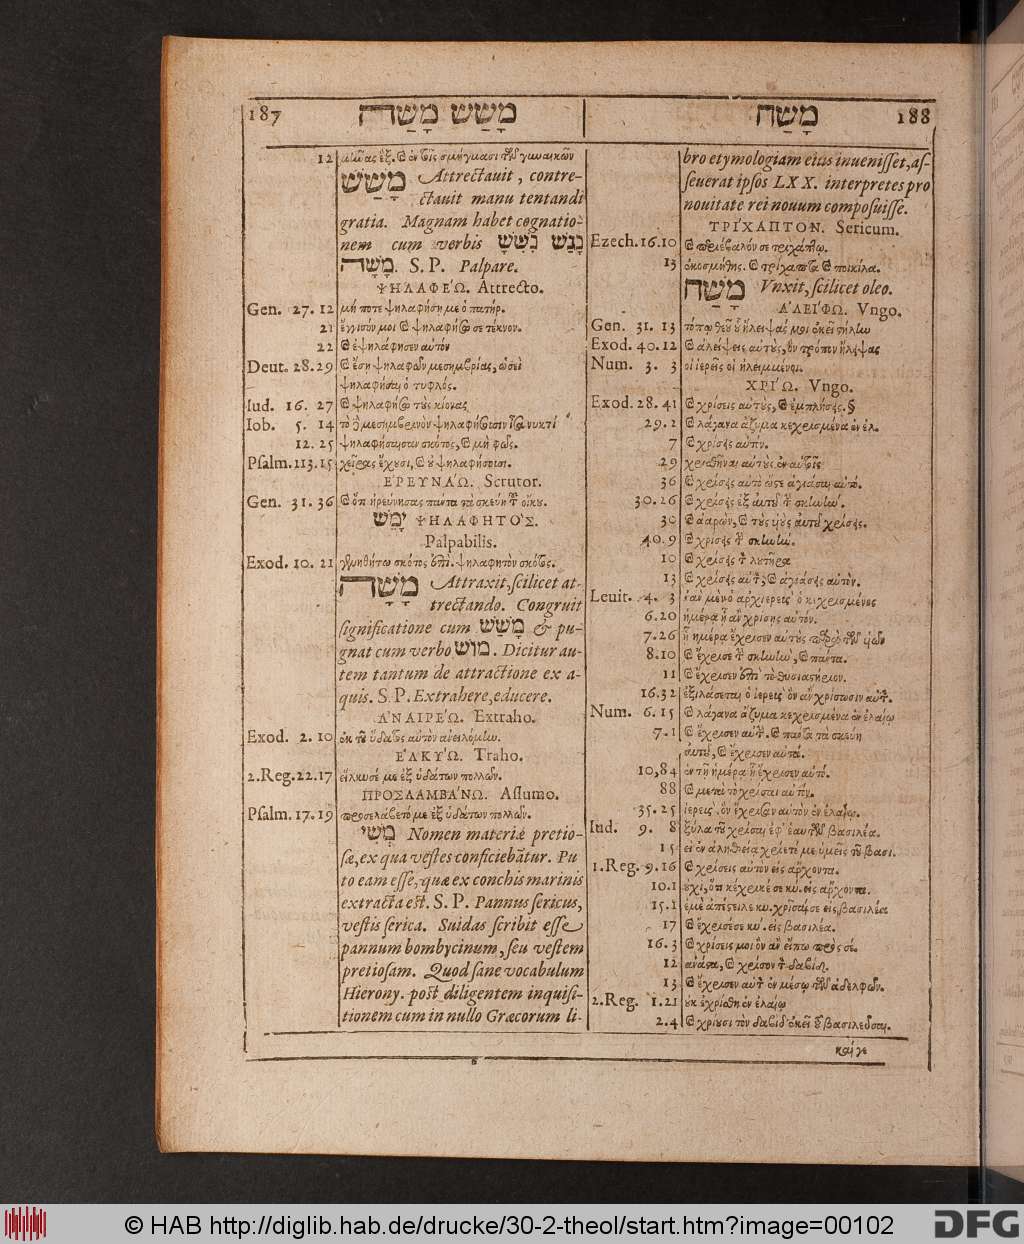 187 מָשַׁשׁ מָשָׁה
12
מָשַׁשׁ Attrectauit, contre-
ctauit manu tentandi
gratia. Magnam habet cognatio-
nem cum verbis נָגַשׁ
מָשָׁה. S. P. Palpare.
ΨΗΛΑΦΕΏ. Attrecto.
Gen. 27. 12 μή ποτε ψηλαφήσῃ με ὁ πατήρ.
21 ἔγγισόν μοι καὶ ψηλαφήσω σε τέκνον.
22 καὶ ἐψηλάφησεν αὐτὸν
Deut. 28. 29 καὶ ἔσῃ ψηλαφῶν μεσημβρίας, ὡσεὶ
ψηλαφήσαι ὁ τυφλός.
Iud. 16. 27 καὶ ψηλαφήσω τοὺς κίονας
Iob. 5. 14
12. 25 ψηλαφήσαισαν σκότος, καὶ μὴ φῶς.
Psalm. 113. 15 χεῖρας ἔχουσι, καὶ οὐ ψηλαφήσουσι.
ἘΡΕΥΝΆΩ. Scrutor.
Gen. 31. 36 καὶ ὅτι ἠρεύνησας πάντα τὰ σκεύη τοῦ οἴκου.
יָמֵשׁ ΨΗΛΑΦΗΤΌΣ.
Palpabilis.
Exod. 10. 21 γενηθήτω σκότος ἐπὶ. ψηλαφητὸν σκότος.
מָשָׁה Attraxit, scilicet at-
trectando. Congruit
significatione cum מָשַׁשׁ & pu-
gnat cum verbo מוּשׁ. Dicitur au-
tem tantum de attractione ex a-
quis. S. P. Extrahere, educere.
ἈΝΑΙΡΈΩ. Extraho.
Exod. 2. 10 ἐκ τοῦ ὕδατος αὐτὸν ἀνειλόμην.
ἙΛΚΎΩ. Traho.
2. Reg. 22. 17 εἵλκυσέ με ἐξ ὑδάτων πολλῶν.
ΠΡΟΣΛΑΜΒΆΝΩ. Assumo.
Psalm. 17. 19 προσελάβετό με ἐξ ὑδάτων πολλῶν.
מֶשִׁי Nomen materiæ pretio-
sæ, ex qua vestes conficiebātur. Pu
to eam esse, quæ ex conchis marinis
extracta est. S. P. Pannus sericus,
vestis serica. Suidas scribit esse
pannum bombycinum, seu vestem
pretiosam. Quod sane vocabulum
Hierony. post diligentem inquisi-
tionem cum in nullo Græcorum li-
מָשַׁח 188
bro etymologiam eius inuenisset, as-
seuerat ipsos LXX. interpretes pro
nouitate rei nouum composuisse.
ΤΡΊΧΑΠΤΟΝ. Sericum.
Ezech. 16. 10 καὶ περιέβαλόν σε τριχάπτῳ.
13
מָשַׁח Vnxit, scilicet oleo.
ἈΛΕΊΦΩ. Vngo.
Gen. 31. 13
Exod. 40. 12 καὶ ἀλείψεις αὐτοὺς, ὃν τρόπον ἤλειψας
Num. 3. 3 οἱ ἱερεῖς οἱ ἠλειμμένοι.
ΧΡΊΩ. Vngo.
Exod. 28. 41 καὶ χρίσεις αὐτοὺς, καὶ ἐμπλήσεις.
29. 2 καὶ λάγανα ἄζυμα κεχρισμένα ἐν ἐλ.
7 καὶ χρίσεις αὐτόν.
29 χρισθῆναι αὐτοὺς ἐν αὐτοῖς
36 καὶ χρίσεις αὐτὸ ὥστε ἁγιάσαι αὐτό.
30. 26 καὶ χρίσεις ἐξ αὐτοῦ τὴν σκηνήν.
30 καὶ ἀαρὼν, καὶ τοὺς υἱοὺς αὐτοῦ χρίσεις.
40. 9 καὶ χρίσεις τὴν σκηνήν.
10 καὶ χρίσεις τὸν λουτῆρα
13 καὶ χρίσεις αὐτὸν, καὶ ἁγιάσεις αὐτόν.
Leuit. 4. 3 ἐὰν μὲν ὁ ἀρχιερεὺς ὁ κεχρισμένος
6. 20 ἡμέρᾳ ᾗ ἂν χρίσῃς αὐτόν.
7. 26
8. 10 καὶ ἔχρισε τὴν σκηνὴν, καὶ πάντα.
11 καὶ ἔχρισεν ἐπὶ τὸ θυσιαστήριον.
16. 32 ἐξιλάσεται ὁ ἱερεὺς ὃν ἂν χρίσωσιν αὐτόν.
Num. 6. 15 καὶ λάγανα ἄζυμα κεχρισμένα ἐν ἐλαίῳ
7. 1 καὶ ἔχρισεν αὐτήν. καὶ πάντα τὰ σκεύη
αὐτοῦ, καὶ ἔχρισεν αὐτά.
10, 84 ἐν τῇ ἡμέρᾳ ᾗ ἔχρισεν αὐτό.
88 καὶ μετὰ τὸ χρίσαι αὐτόν.
35. 25 ἱερεὺς. ὃν ἔχρισαν αὐτὸν ἐν ἐλαίῳ.
Iud. 9. 8
15 εἰ ἐν ἀληθείᾳ χρίετέ με ὑμεῖς τοῦ βασι.
1. Reg. 9. 16 καὶ χρίσεις αὐτὸν εἰς ἄρχοντα.
10. 1 οὐχὶ, ὅτι κέχρικέ σε κύ. εἰς ἄρχοντα.
15. 1 ἐμὲ ἀπέστειλε κυ. χρῖσαί σε εἰς βασιλέα
17 καὶ ἔχρισέ σε κύ. εἰς βασιλέα.
16. 3 καὶ χρίσεις μοι ὃν ἂν εἴπω πρὸς σέ.
12 ἀνάστα, καὶ χρῖσον τὸν δαβίδ.
13 καὶ ἔχρισεν αὐτὸν ἐν μέσῳ τῶν ἀδελφῶν.
2. Reg. 1. 21 οὐκ ἐχρίσθη ἐν ἐλαίῳ
2. 4 καὶ χρίουσι τὸν δαβὶδ ἐκεῖ τοῦ βασιλεῦσαι.
καί γε
© HAB http://diglib.hab.de/drucke/30-2-theol/start.htm?image=00102 DFG